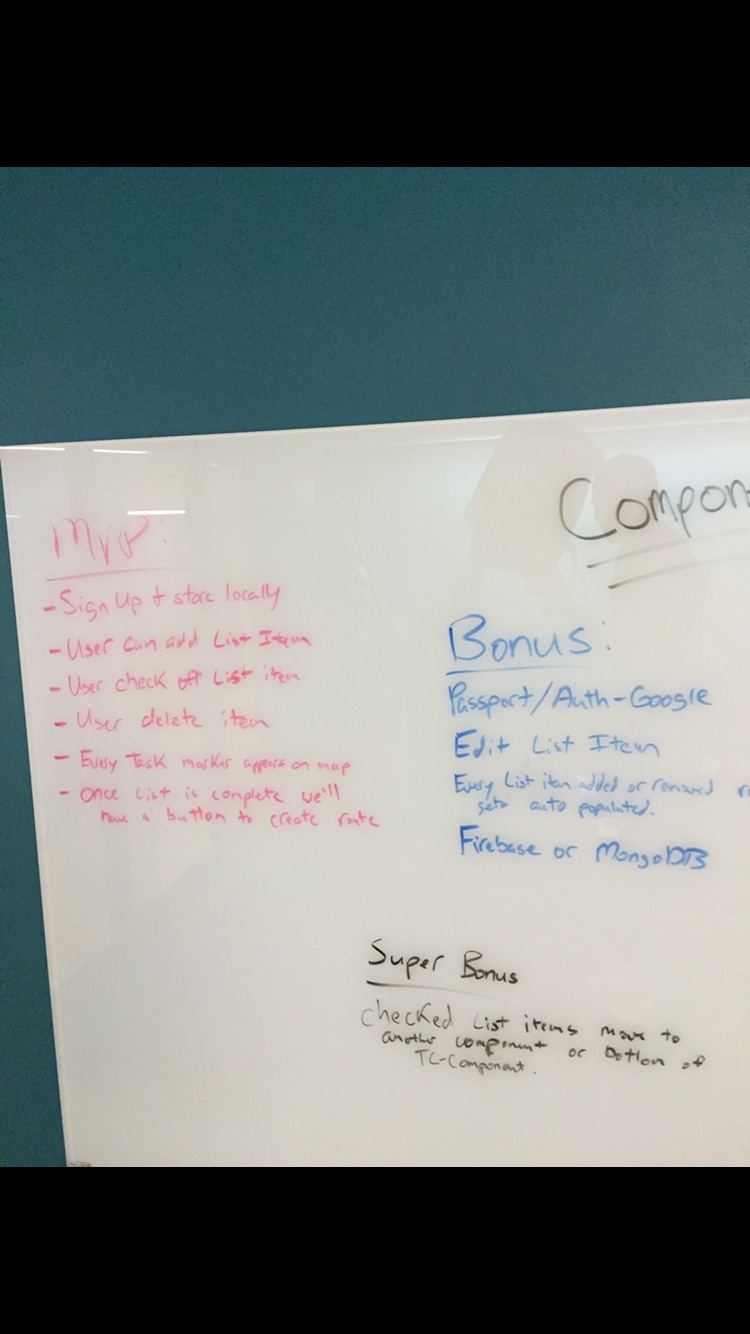 Compon
MVP:
- Sign Up + store locally
- User can add List Item
- User check off List item
- User delete item
- Every Task marker appears on map
- Once List is complete we'll
have a button to create route
Bonus:
Passport/Auth-Google
Edit List Item
Every List item added or removed
gets auto populated.
Firebase or MongoDB
Super Bonus
Checked List items move to
another component or bottom of
TL-Component.